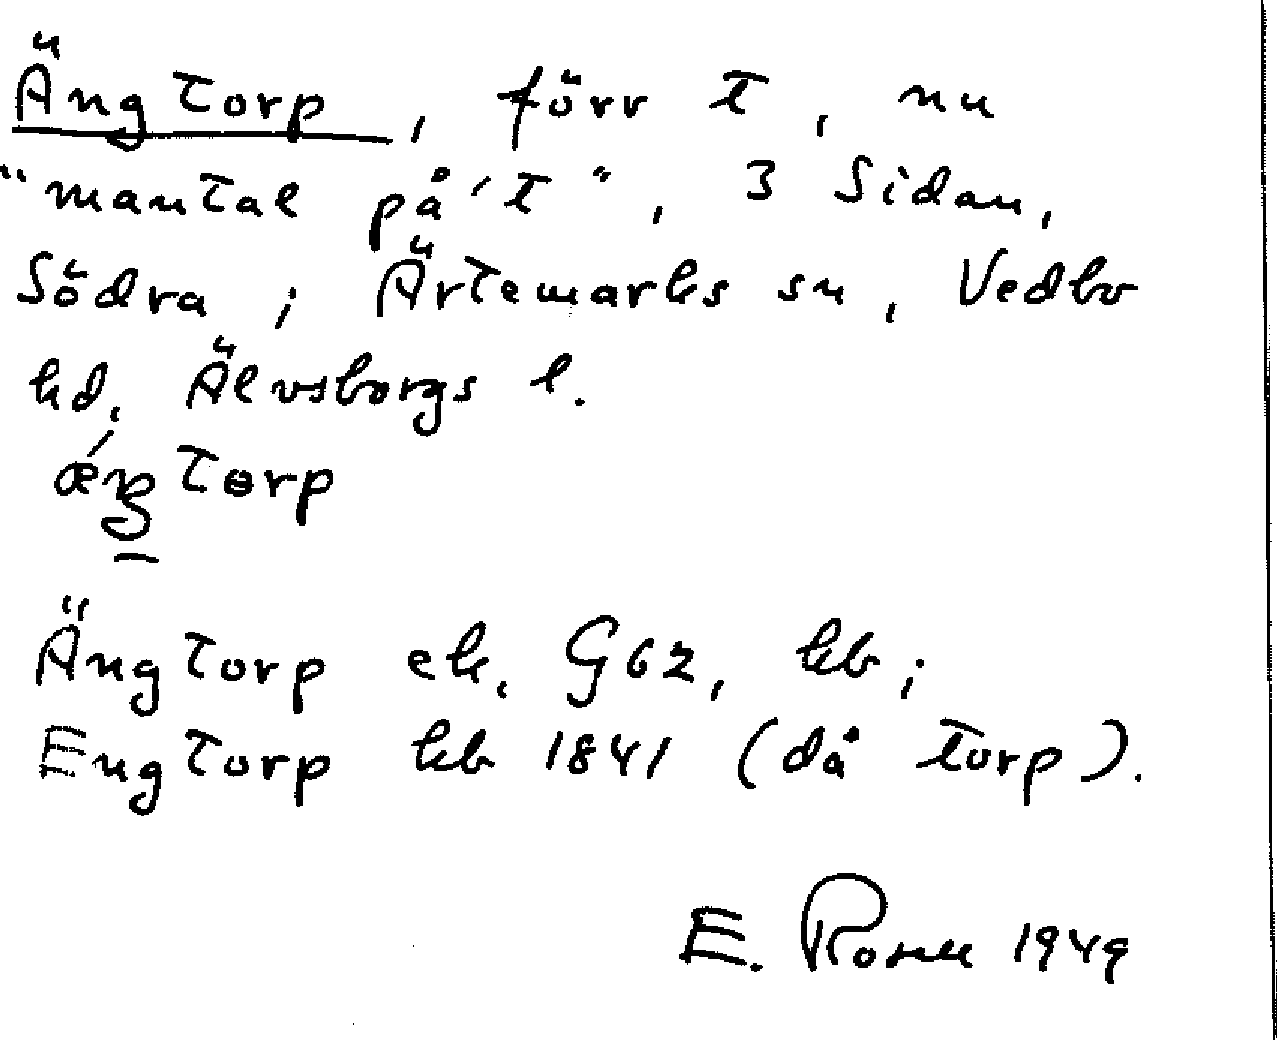 Ängtorp, förr t, nu
"mantal på 't", 3 Sidan,
Södra; Ärtemarks sn, Vedbo
hd, Älvsborgs l.
torp
Ängtorp ek. G62, kb;
Engtorp kb 1841 (då torp).
E. Rosell 1949